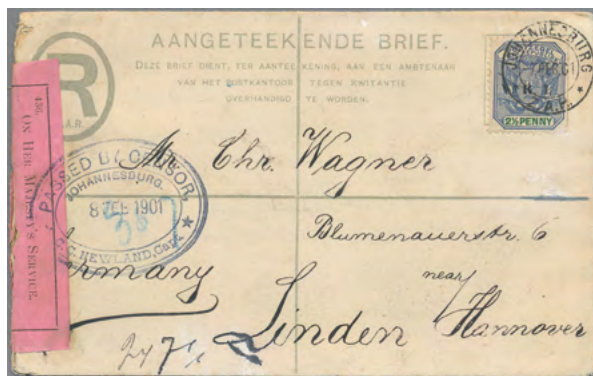 AANGETEEKENDE BRIEF.
DEZE BRIEF DIENT, TER AANTEEKENING, AAN EEN AMBTENAAR
VAN HET POSTKANTOOR TEGEN KWITANTIE
OVERHANDIGD TE WORDEN.
R
A.R.
JOHANNESBURG
2½ PENNY
436.
ON HER MAJESTY'S SERVICE.
PASSED BY CENSOR,
JOHANNESBURG.
8 FEB 1901
C. NEWLAND, Capt.
Mr. Chr. Wagner
Blumenauerstr. 6
Germany
near
Linden Hannover